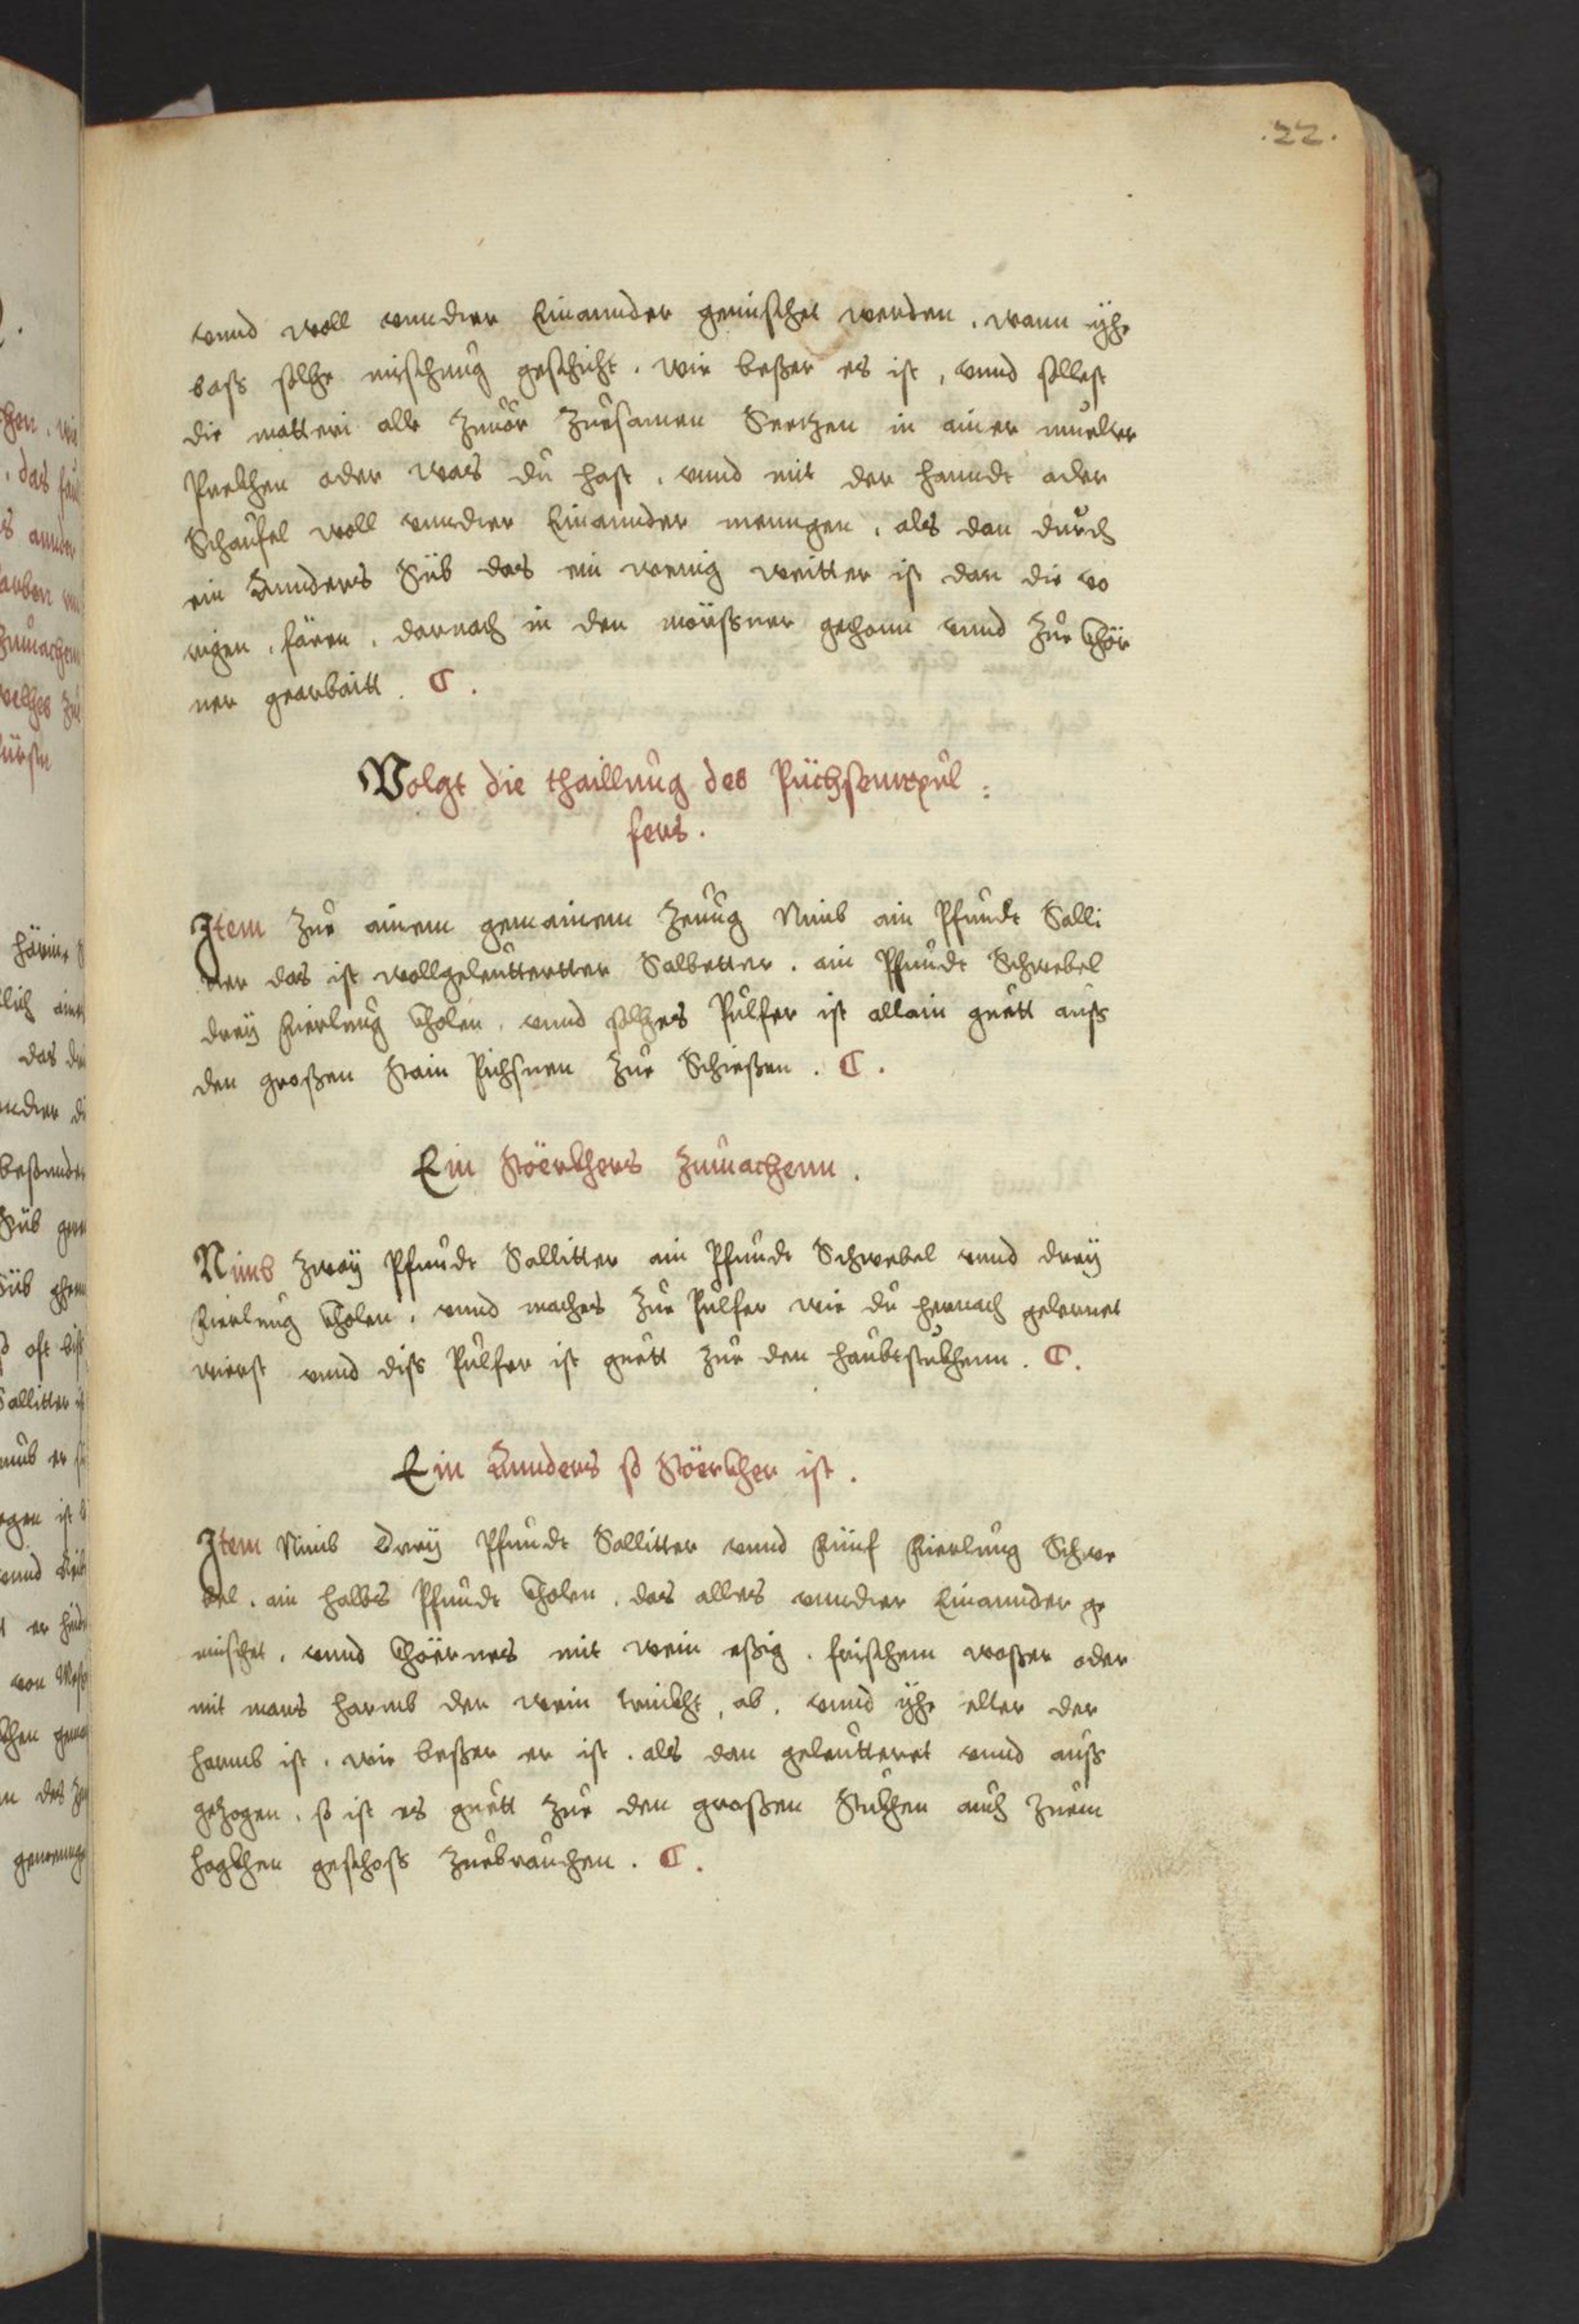 .22.
vnnd woll vnnder Einannder gemischet werden. wann yhe
bass solhe mischung geschicht. wie beßer es ist, vnnd sollest
die matteri alle zuuor zuesamen Seetzen in ainer muelter
Prekhen oder was du hast. vnnd mit der hanndt oder
Schaufel woll vnnder Einannder menngen. als dan durch
ein Annders Süb das ein wenig weitter ist dan die vo
rigen. fären. darnach in den mörssner gethonn vnnd zue Khör
ner gearbaitt. C.
Volgt die thaillung des Püchsennpul:
fers.
Item zue ainem gemainem zeuug Nimb ain Pfundt Salli
ter das ist wollgeleuttertter Salbetter. ain Pfundt Schwebel
dreÿ Fierlnng Kholen. vnnd solhes Pulfer ist allain guett auss
den großen Stain Pichsnen zue Schießen. C.
Ein Stöerkhers zumachenn.
Nimb zwaÿ Pfundt Sallitter ain Pfundt Schwebel vnnd dreÿ
Fierlnng Kholen. vnnd maches zue Pulfer wie du hernach gelernet
wierst vnnd diss Pulfer ist guett zue den haubtstukhenn. C.
Ein Annders so Stöerkher ist.
Item Nimb Dreÿ Pfundt Sallitter vnnd Fünf Fierlnng Schwe
bel. ain halbs Pfundt Kholen. das alles vnnder Einannder ge
mischet. vnnd Khöernes mit wein eßig. frischem waßer oder
mit mans harmb der wein trinkht, ab. vnnd yhe elter der
harmb ist. wie beßer er ist. als dan geleutteret vnnd auss
gezogen. so ist es guett zue den großen Stukhen auch zuem
hagkhen geschoss zuebrauchen. C.